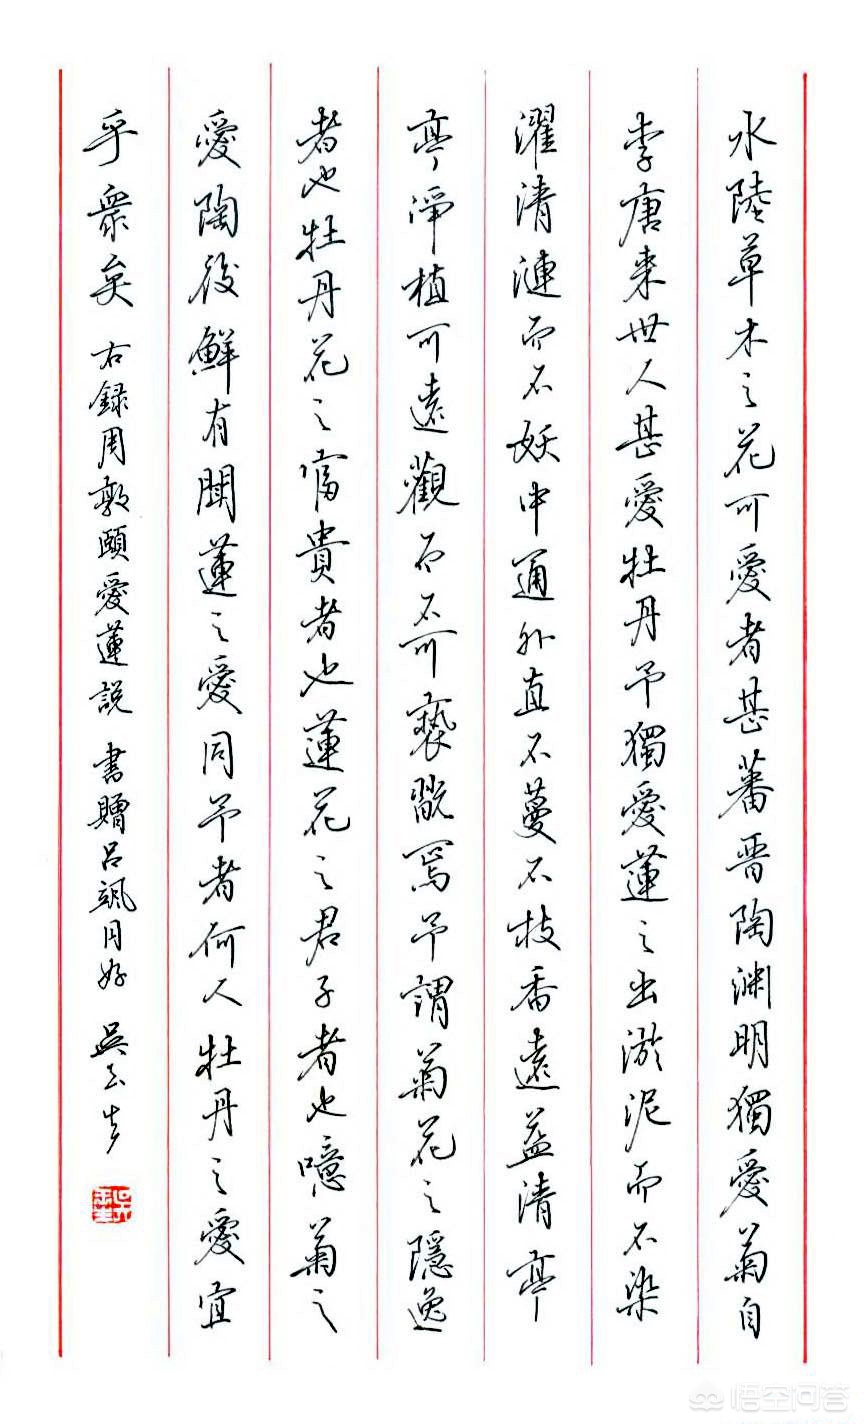 水陸草木之花可愛者甚蕃晋陶渊明獨愛菊自
李唐来世人甚愛牡丹予獨愛蓮之出淤泥而不染
濯清漣而不妖中通外直不蔓不枝香遠益清亭
亭淨植可遠觀而不可褻翫焉予謂菊花之隱逸
者也牡丹花之富貴者也蓮花之君子者也噫菊之
愛陶後鮮有聞蓮之愛同予者何人牡丹之愛宜
乎衆矣 右録周敦頤愛蓮説 書贈吕颯同好 吳玉生
悟空问答